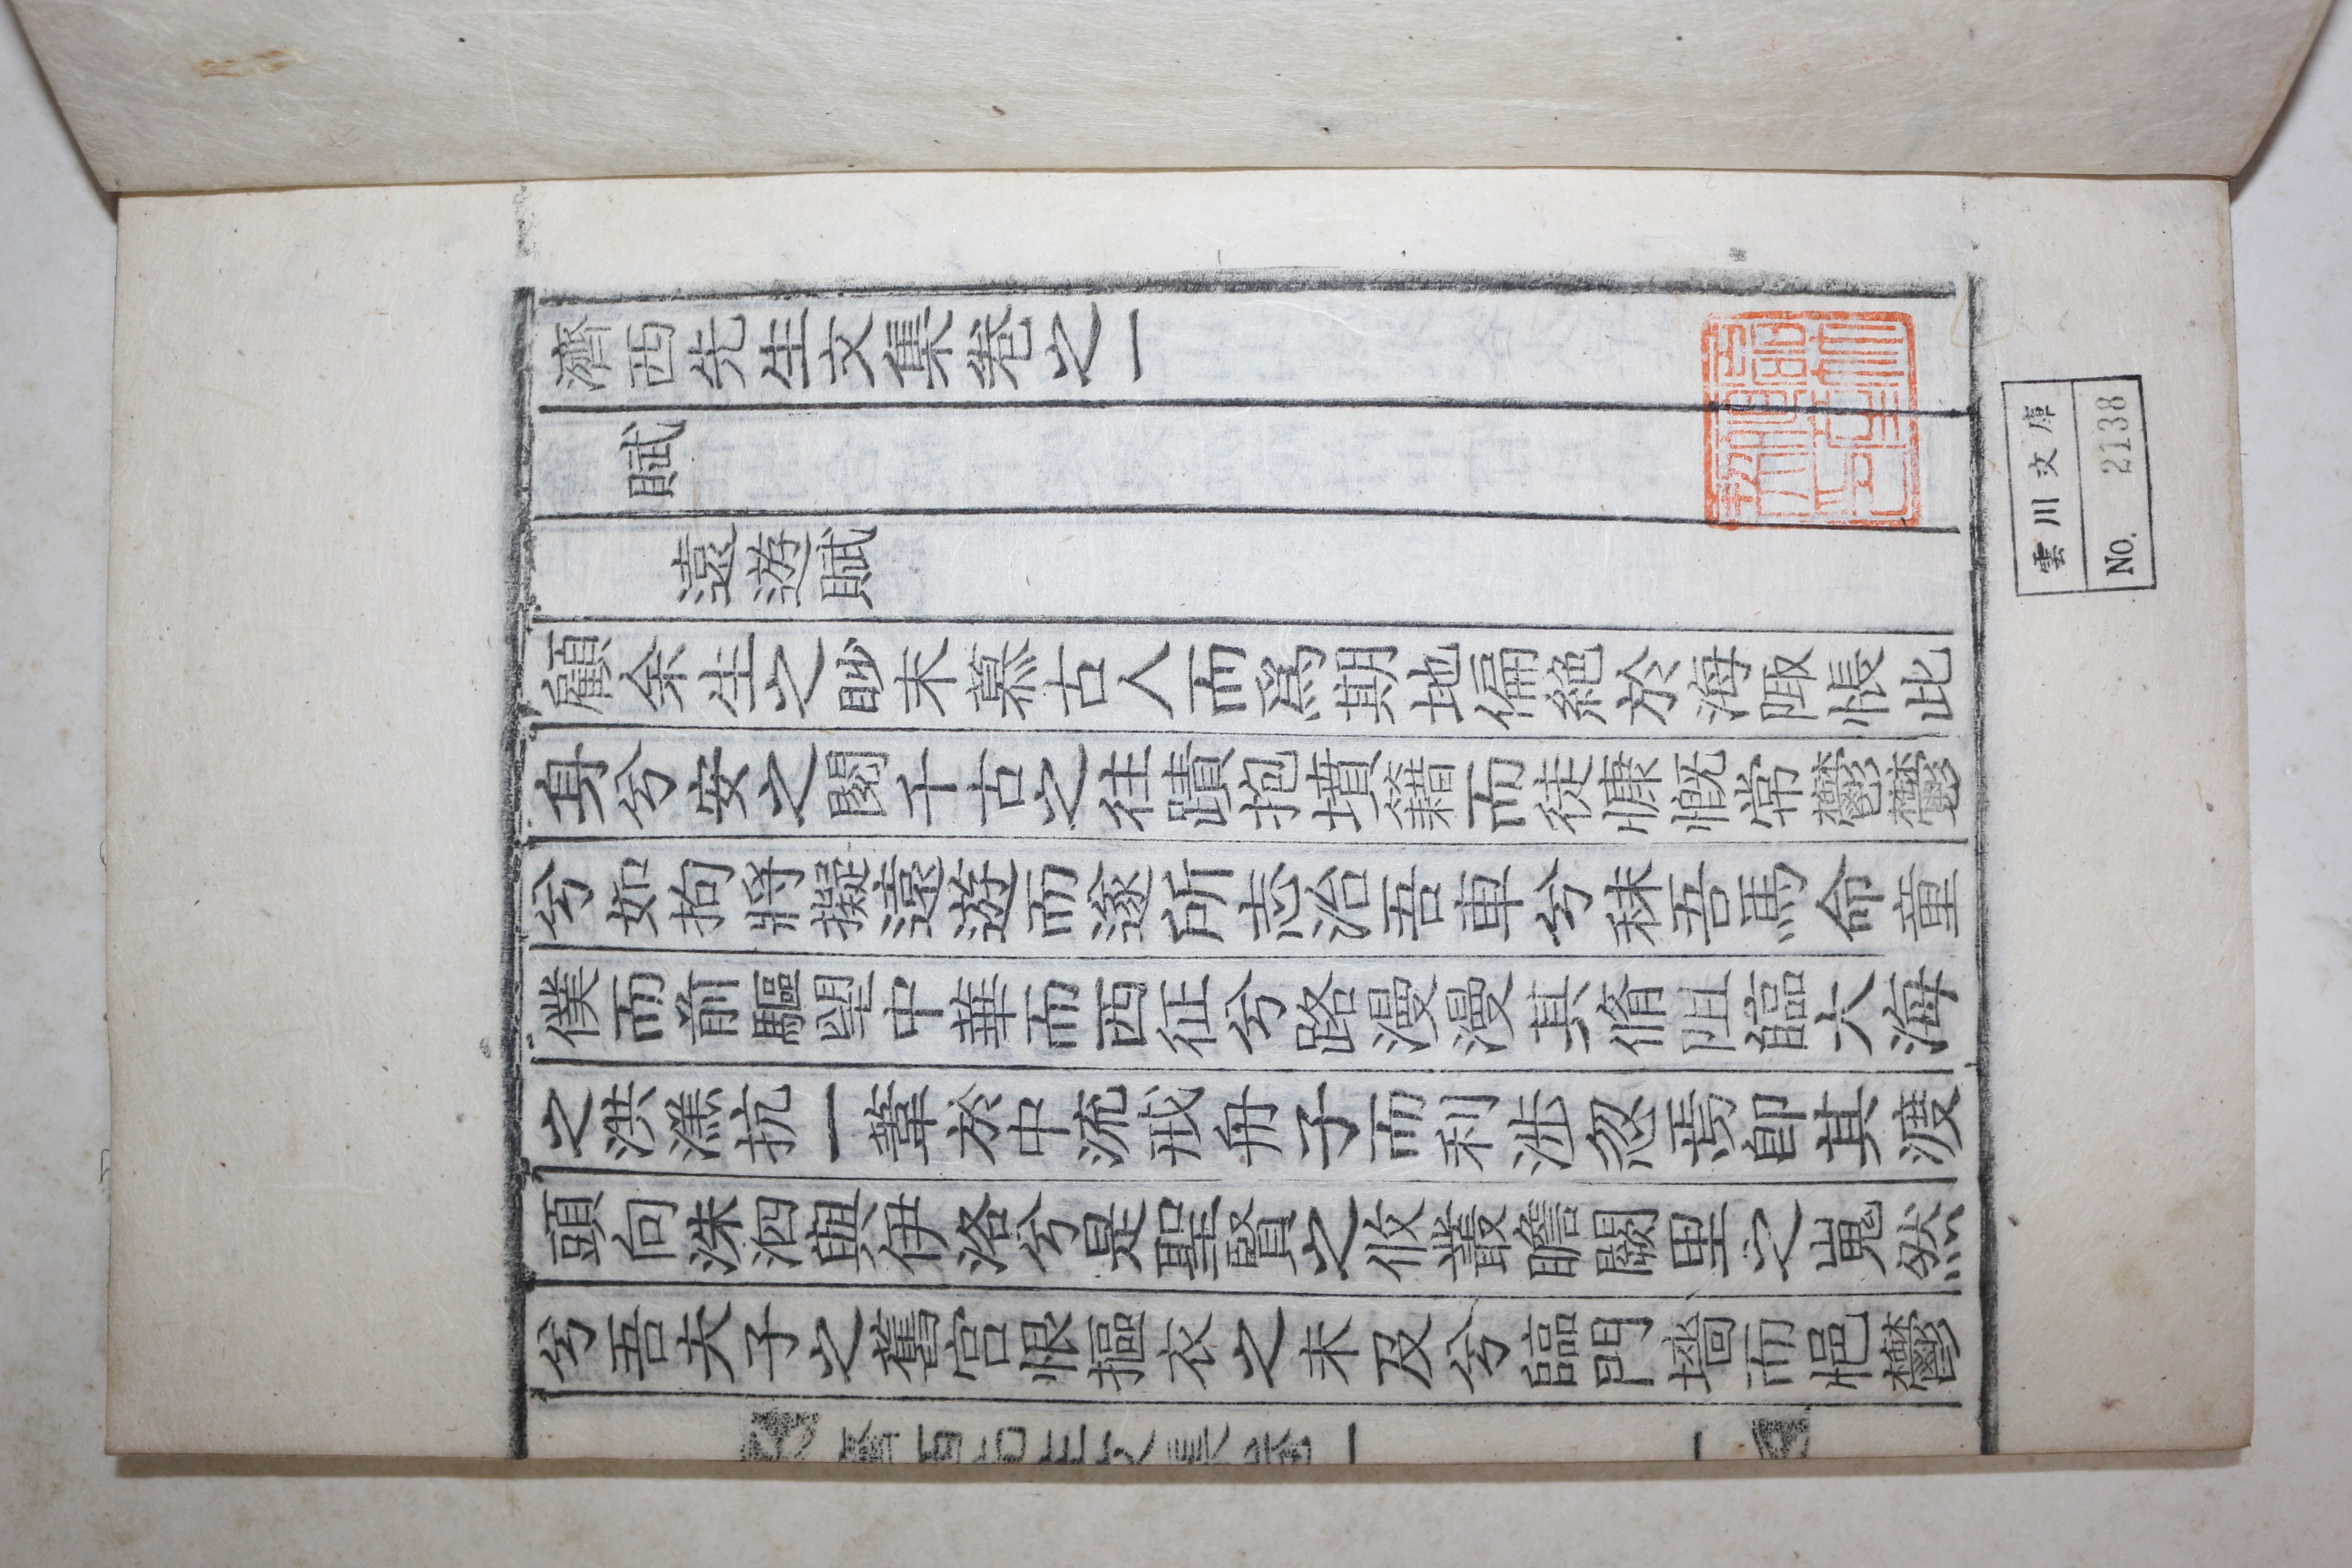 濟西先生文集卷之一
賦
遠遊賦
顧余生之眇末慕古人而爲期地偏絶於海陬悵此
身兮安之閱千古之往蹟抱墳籍而徒慷慨常鬱鬱
兮如拘將擬遠遊而遂所志治吾車兮秣吾馬命童
僕而前驅望中華而西征兮路漫漫其脩阻臨大海
之洪濤抗一葦於中流戒舟子而利涉忽焉卽其渡
頭向洙泗與伊洛兮是聖賢之攸叢瞻闕里之嵬然
兮吾夫子之舊宮恨摳衣之未及兮臨門墻而悒鬱
濟西先生文集卷一
一
雲川文庫
No. 2138